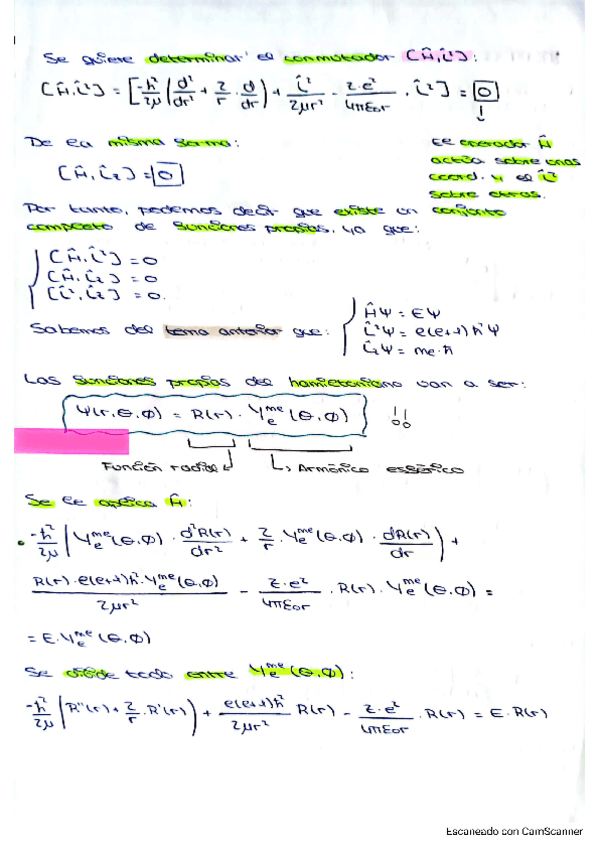 Se quiere determinar el conmutador [Ĥ, L̂²]:
[Ĥ, L̂²] = [-ħ²/2μ (d²/dr² + 2/r · d/dr) + L̂²/2μr² - z·e²/4πε₀r · L̂²] = 0
De la misma forma:
[Ĥ, L̂z] = 0
El operador Ĥ
actúa sobre unas
coord. y el L̂²
sobre otras.
Por tanto, podemos decir que existe un conjunto
completo de funciones propias, ya que:
[Ĥ, L̂²] = 0
[Ĥ, L̂z] = 0
[L̂², L̂z] = 0.
Sabemos del tema anterior que:
ĤΨ = EΨ
L̂²Ψ = l(l+1)ħ²Ψ
L̂zΨ = ml·ħ
Las funciones propias del hamiltoniano van a ser:
Ψ(r,θ,ϕ) = R(r) · Yₗᵐˡ(θ,ϕ) !!
Función radial Armónico esférico
Se le aplica Ĥ:
• -ħ²/2μ (Yₗᵐˡ(θ,ϕ) · d²R(r)/dr² + 2/r · Yₗᵐˡ(θ,ϕ) · dR(r)/dr) +
R(r)·l(l+1)ħ²·Yₗᵐˡ(θ,ϕ)/2μr² - z·e²/4πε₀r · R(r) · Yₗᵐˡ(θ,ϕ) =
= E·Yₗᵐˡ(θ,ϕ)
Se divide todo entre Yₗᵐˡ(θ,ϕ):
-ħ²/2μ (R''(r) + 2/r · R'(r)) + l(l+1)ħ²/2μr² R(r) - z·e²/4πε₀r · R(r) = E·R(r)
Escaneado con CamScanner